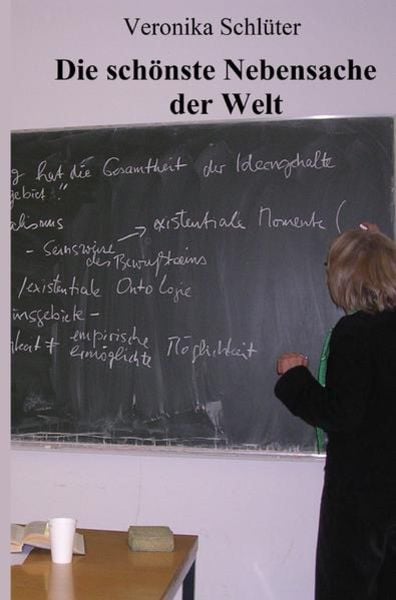 Veronika Schlüter
Die schönste Nebensache
der Welt
g hat die Gesamtheit der Ideengehalte
gebiet."
alismus
existentiale Momente (
- Seinsweise
des Bewußtseins
/existentiale Ontologie
insgebiete -
keit ≠ empirische
ermöglichte Möglichkeit